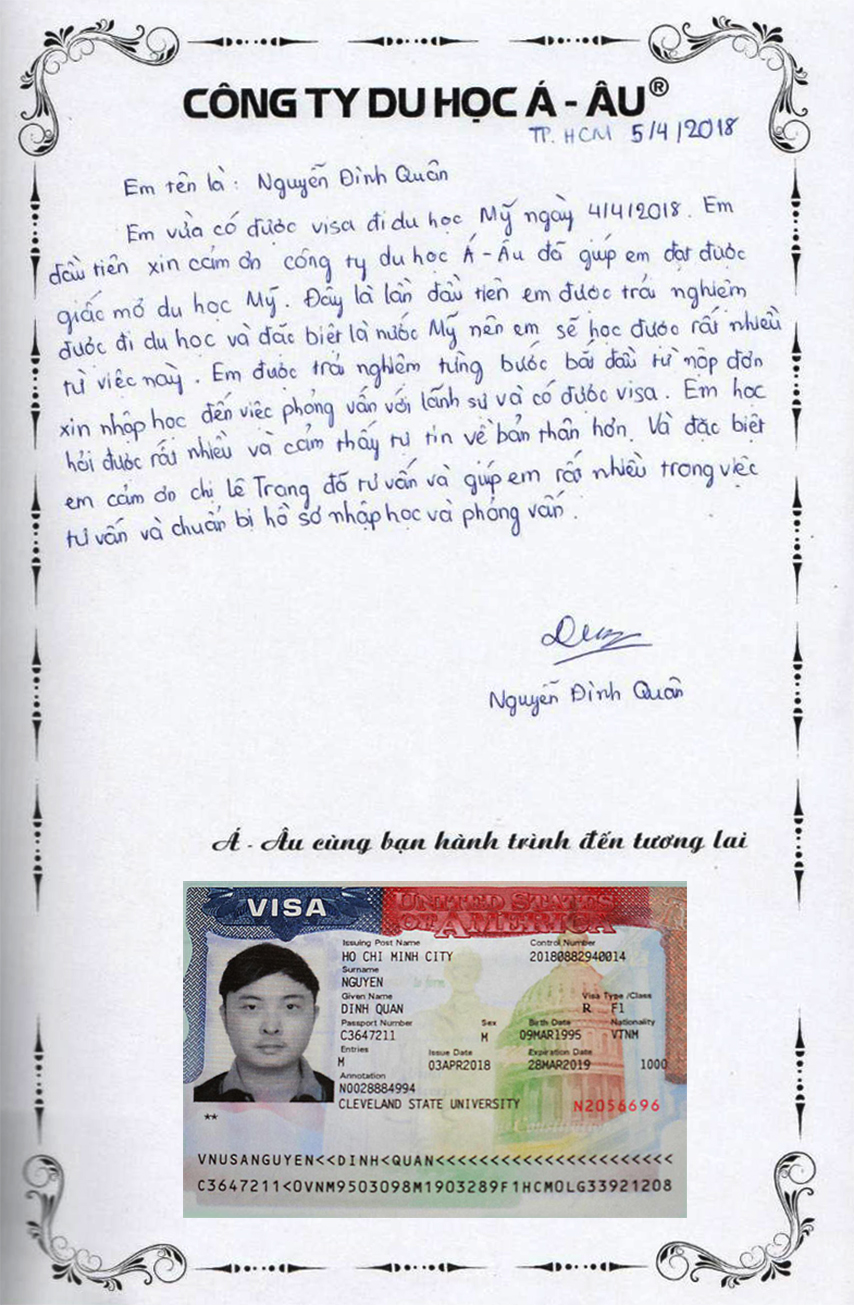 CÔNG TY DU HỌC Á - ÂU®
TP. HCM 5/4/2018
Em tên là : Nguyễn Đình Quân
Em vừa có được visa đi du học Mỹ ngày 4/4/2018. Em
đầu tiên xin cảm ơn công ty du học Á - Âu đã giúp em đạt được
giấc mơ du học Mỹ. Đây là lần đầu tiên em được trải nghiệm
được đi du học và đặc biệt là nước Mỹ nên em sẽ học được rất nhiều
từ việc này. Em được trải nghiệm từng bước bắt đầu từ nộp đơn
xin nhập học đến việc phỏng vấn với lãnh sự và có được visa. Em học
hỏi được rất nhiều và cảm thấy tự tin về bản thân hơn. Và đặc biệt
em cảm ơn chị Lê Trang đã tư vấn và giúp em rất nhiều trong việc
tư vấn và chuẩn bị hồ sơ nhập học và phỏng vấn.
Nguyễn Đình Quân
Á - Âu cùng bạn hành trình đến tương lai
VISA UNITED STATES
OF AMERICA
Issuing Post Name Control Number
HO CHI MINH CITY 20180882940014
Surname
NGUYEN
Given Name Visa Type /Class
DINH QUAN R F1
Passport Number Sex Birth Date Nationality
C3647211 M 09MAR1995 VTNM
Entries Issue Date Expiration Date
M 03APR2018 28MAR2019 1000
Annotation
N0028884994
CLEVELAND STATE UNIVERSITY N2056696
**
VNUSANGUYEN<<DINH<QUAN<<<<<<<<<<<<<<<<<<<<<<
C3647211<0VNM9503098M1903289F1HCM0LG33921208